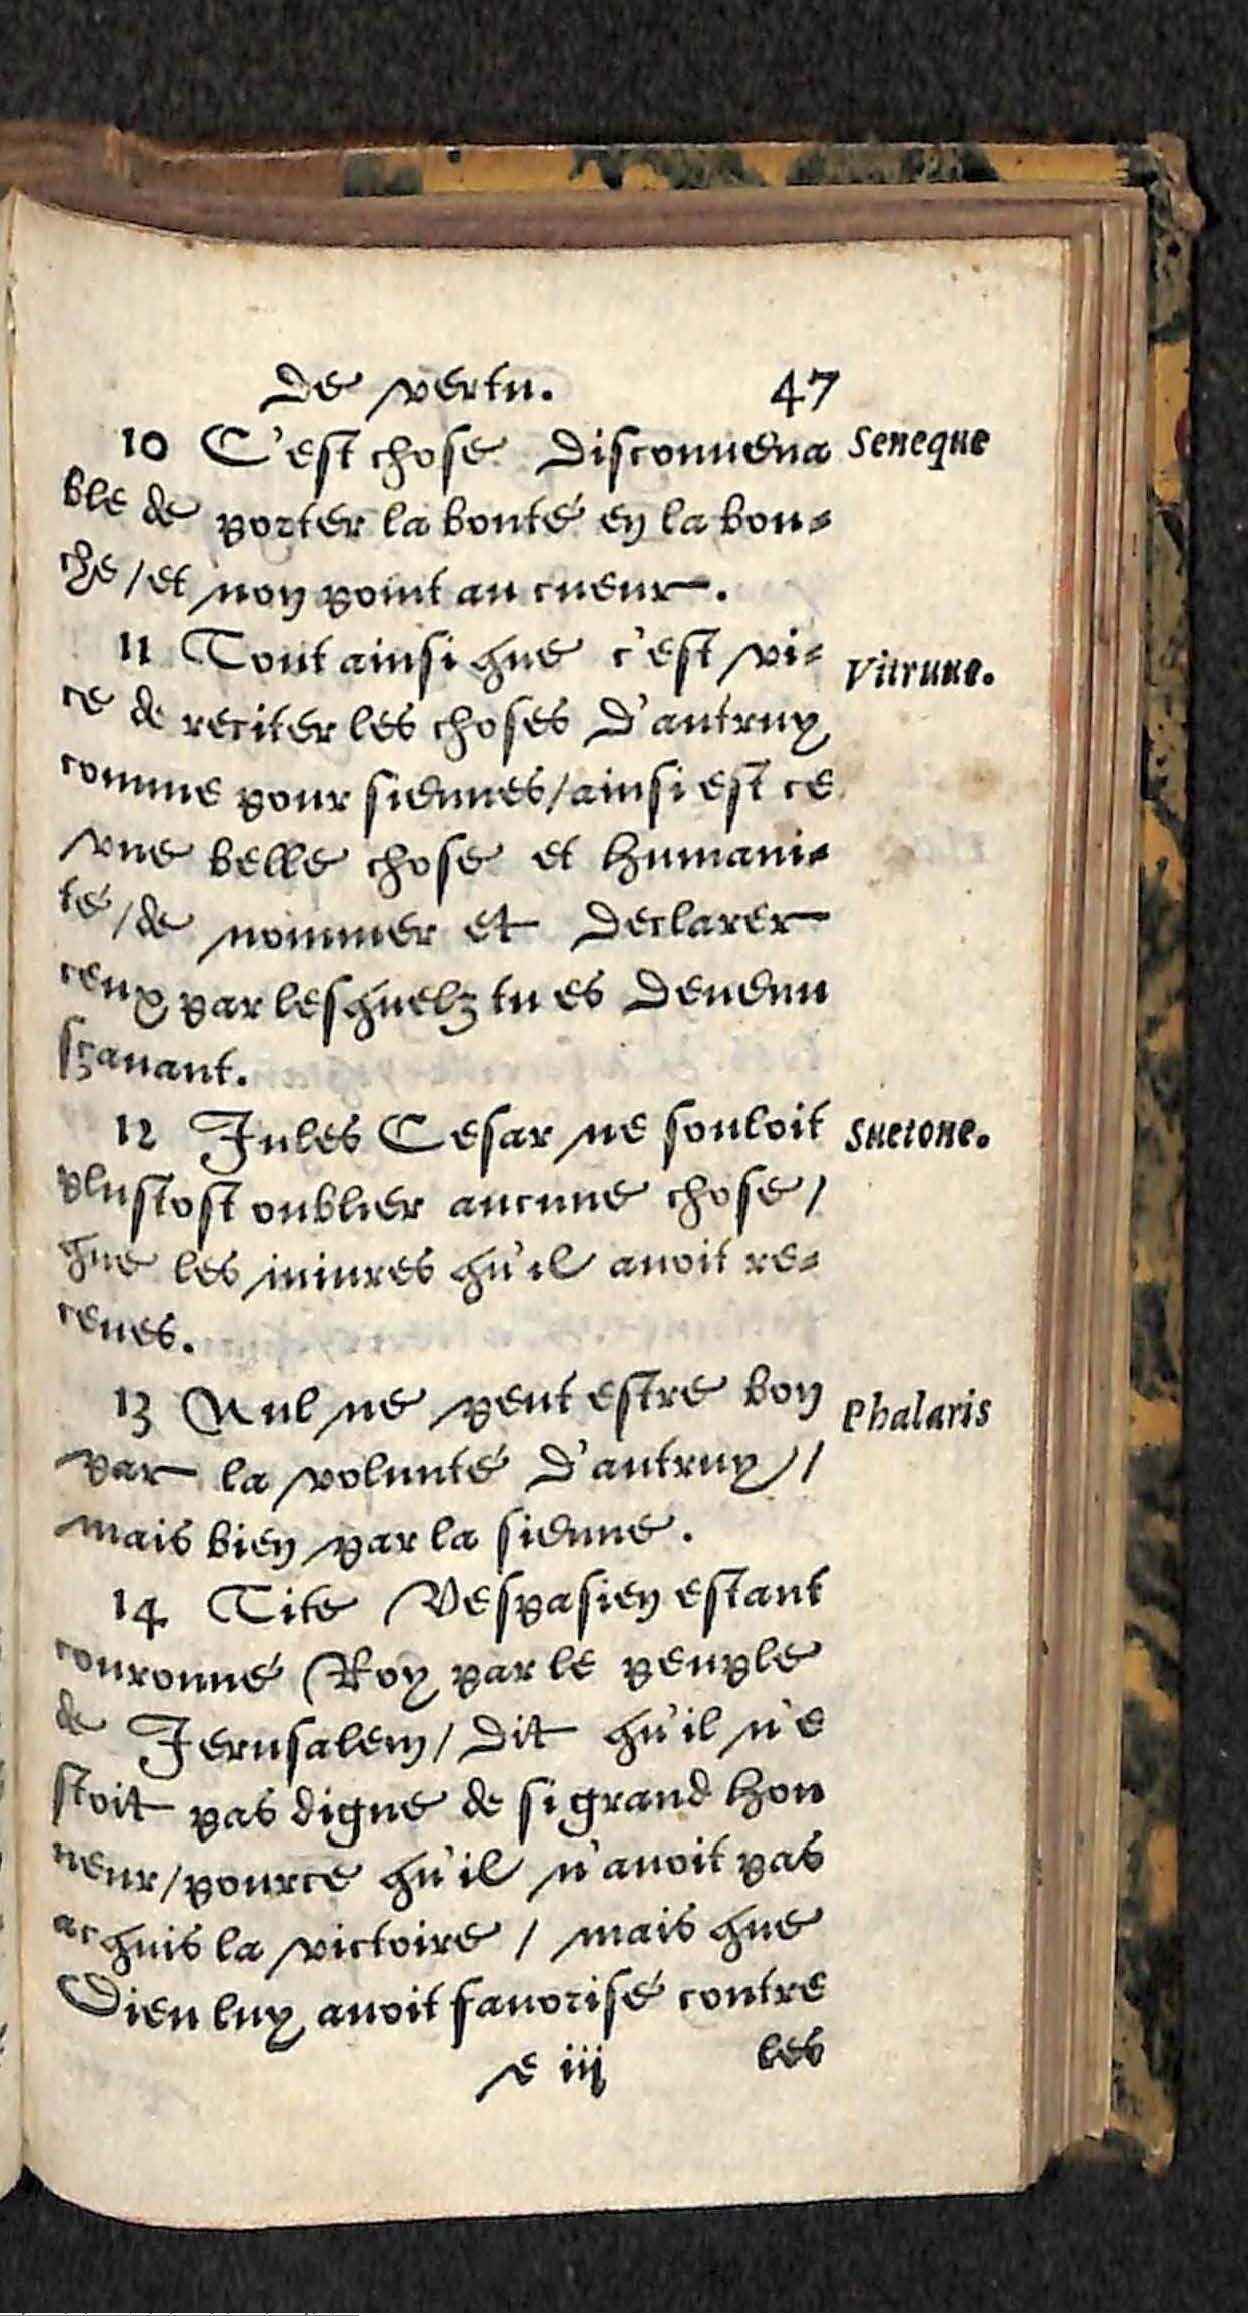 De vertu. 47
10 C'est chose disconuena Seneque
ble de porter la bonté en la bou-
che / et non point au cueur.
11 Tout ainsi que c'est vi- Vitruue.
ce de reciter les choses d'autruy
comme pour siennes / ainsi est ce
vne belle chose et humani-
té / de nommer et declarer
ceux par lesquelz tu es deuenu
sçauant.
12 Jules Cesar ne souloit Suetone.
plustost oublier aucune chose /
que les iniures qu'il auoit re-
ceues.
13 Nul ne peut estre bon Phalaris
par la volunté d'autruy /
mais bien par la sienne.
14 Tite Vespasien estant
couronné Roy par le peuple
de Jerusalem / dit qu'il n'e
stoit pas digne de si grand hon
neur / pource qu'il n'auoit pas
acquis la victoire / mais que
Dieu luy auoit fauorisé contre
e iij les